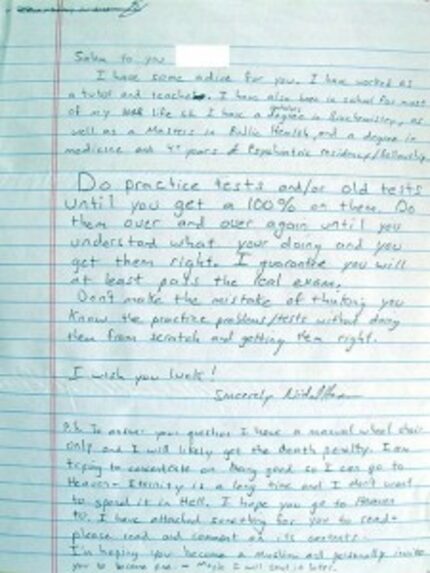 Salam to you
I have some advice for you. I have worked as
a tutor and teacher. I have also been in school for most
of my life so I have a degree in Biochemistry, as
well as a Masters in Public Health, and a degree in
medicine and years of Psychiatric residency/fellowship.
Do practice tests and/or old tests
until you get a 100% on them. Do
them over and over again until you
understand what your doing and you
get them right. I guarantee you will
at least pass the real exam.
Don't make the mistake of thinking you
know the practice problems/tests without doing
them from scratch and getting them right.
I wish you luck!
Sincerely
P.S. To answer your question I have a manual wheel chair
only and I will likely get the death penalty. I am
trying to concentrate on being good so I can go to
Heaven - Eternity is a long time and I don't want
to spend it in Hell. I hope you go to Heaven
to. I have attached something for you to read -
please read and comment on its contents.
I'm hoping you become a Muslim and personally invite
you to become one - Maybe I will send it later.